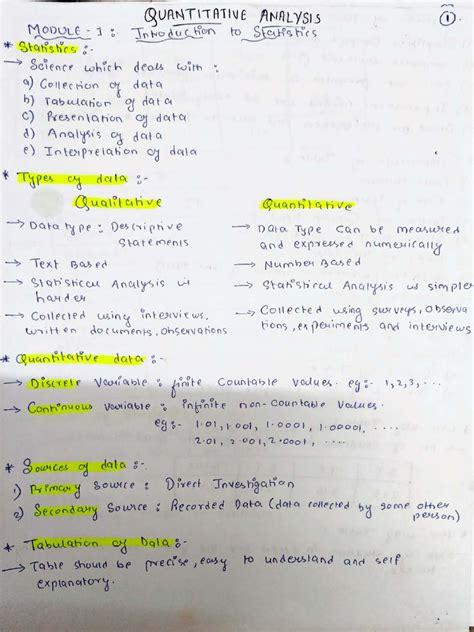 QUANTITATIVE ANALYSIS
1
MODULE - I : Introduction to Statistics
* Statistics :-
→ Science which deals with :
a) Collection of data
b) Tabulation of data
c) Presentation of data
d) Analysis of data
e) Interpretation of data
* Types of data :-
Qualitative
→ Data type : Descriptive
Statements
→ Text Based
→ Statistical Analysis is
harder
→ Collected using interviews,
written documents, observations
Quantitative
→ Data Type can be measured
and expressed numerically
→ Number Based
→ Statistical Analysis is simpler
→ Collected using surveys, observa
tions, experiments and interviews
* Quantitative data :-
→ Discrete Variable : finite Countable values. eg :- 1, 2, 3, ...
→ Continuous variable : infinite non-countable values.
eg :- 1.01, 1.001, 1.0001, 1.00001, ....
2.01, 2.001, 2.0001 ....
* Sources of data :-
1) Primary Source : Direct Investigation
2) Secondary Source : Recorded Data (data collected by some other
person)
* Tabulation of Data :-
→ Table should be precise, easy to understand and self
explanatory.